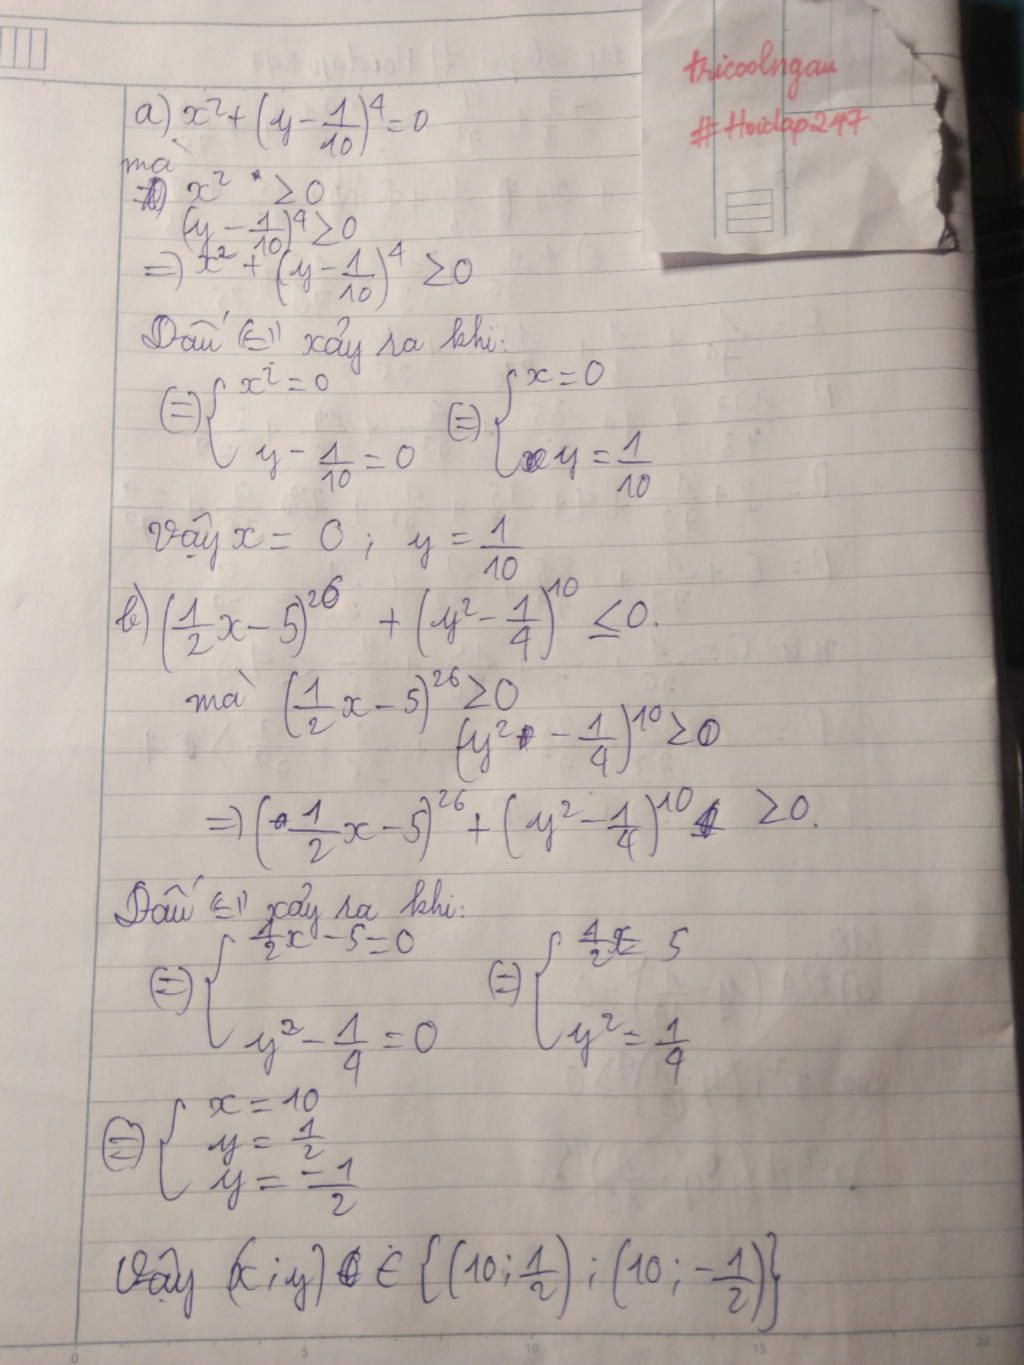 tricoolngau
#Hoidap247
a) x² + (y - 1/10)⁴ = 0
mà
x² ≥ 0
(y - 1/10)⁴ ≥ 0
=) x² + (y - 1/10)⁴ ≥ 0
Dấu "=" xảy ra khi:
(=) { x² = 0 (=) { x = 0
y - 1/10 = 0 y = 1/10
Vậy x = 0 ; y = 1/10
b) (1/2 x - 5)²⁶ + (y² - 1/4)¹⁰ ≤ 0.
mà (1/2 x - 5)²⁶ ≥ 0
(y² - 1/4)¹⁰ ≥ 0
=) (1/2 x - 5)²⁶ + (y² - 1/4)¹⁰ ≥ 0.
Dấu "=" xảy ra khi:
(=) { 1/2 x - 5 = 0 (=) { 1/2 x = 5
y² - 1/4 = 0 y² = 1/4
(=) { x = 10
y = 1/2
y = -1/2
Vậy (x ; y) ∈ {(10 ; 1/2) ; (10 ; -1/2)}
0 5 10 15 20